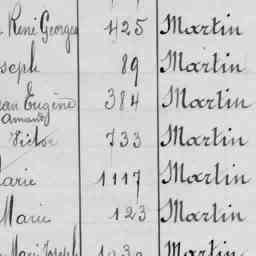 René Georges 425 Martin
Joseph 89 Martin
Jean Eugène 384 Martin
Amand
Victor 733 Martin
Marie 1117 Martin
Marie 123 Martin
Marie Joseph Martin